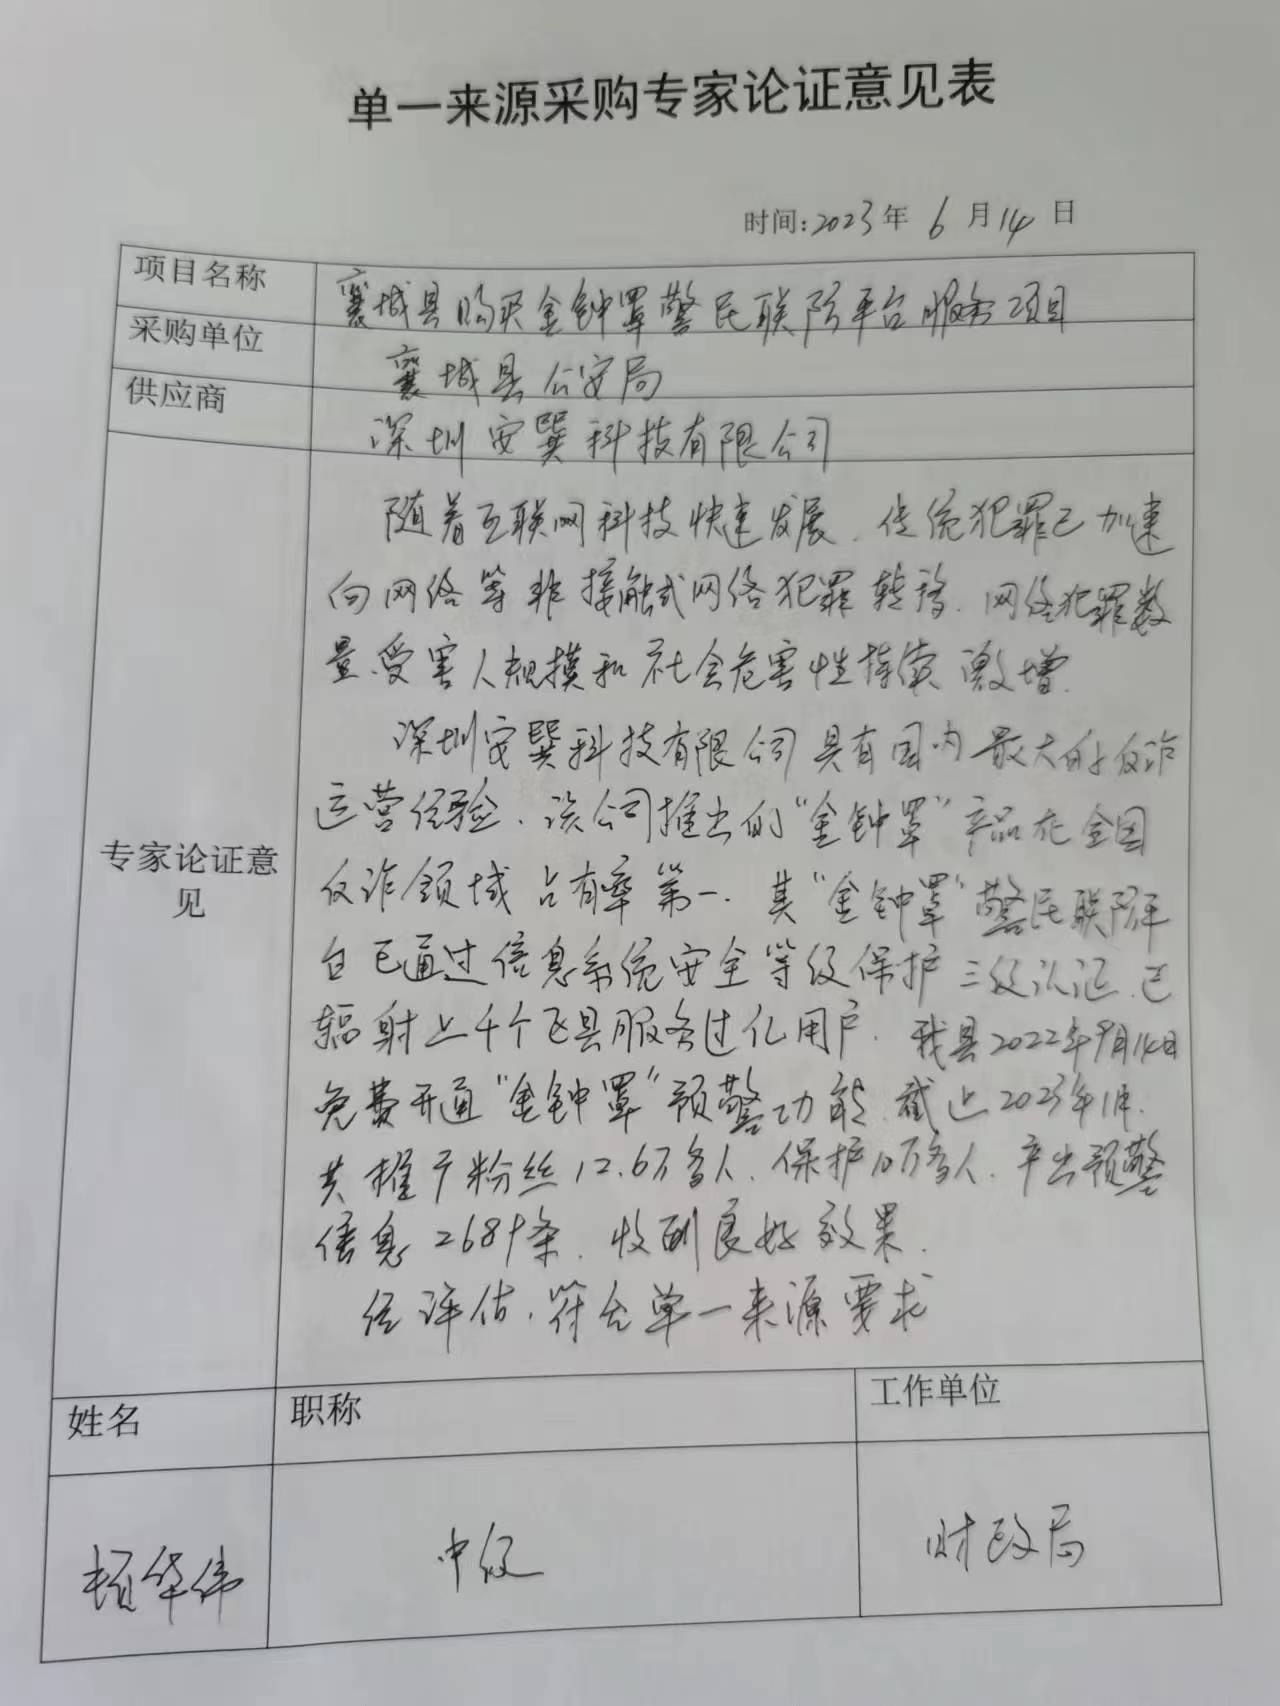 单一来源采购专家论证意见表
时间:2023年 6 月 14 日
项目名称
襄城县购买金钟罩警民联防平台服务项目
采购单位
襄城县公安局
供应商
深圳安巽科技有限公司
专家论证意
见
随着互联网科技快速发展、传统犯罪已加速
向网络等非接触式网络犯罪转移、网络犯罪数
量、受害人规模和社会危害性持续激增.
深圳安巽科技有限公司具有国内最大的反诈
运营经验、该公司推出的“金钟罩”产品在全国
反诈领域占有率第一、其“金钟罩”警民联防平
台已通过信息系统安全等级保护三级认证、已
辐射上千个区县服务过亿用户、我县2022年9月14日
免费开通“金钟罩”预警功能、截止2023年1月、
共推广粉丝12.6万多人、保护10万多人、产出预警
信息 2689条、收到良好效果.
经评估、符合单一来源要求
姓名
职称
工作单位
华伟
中级
财政局